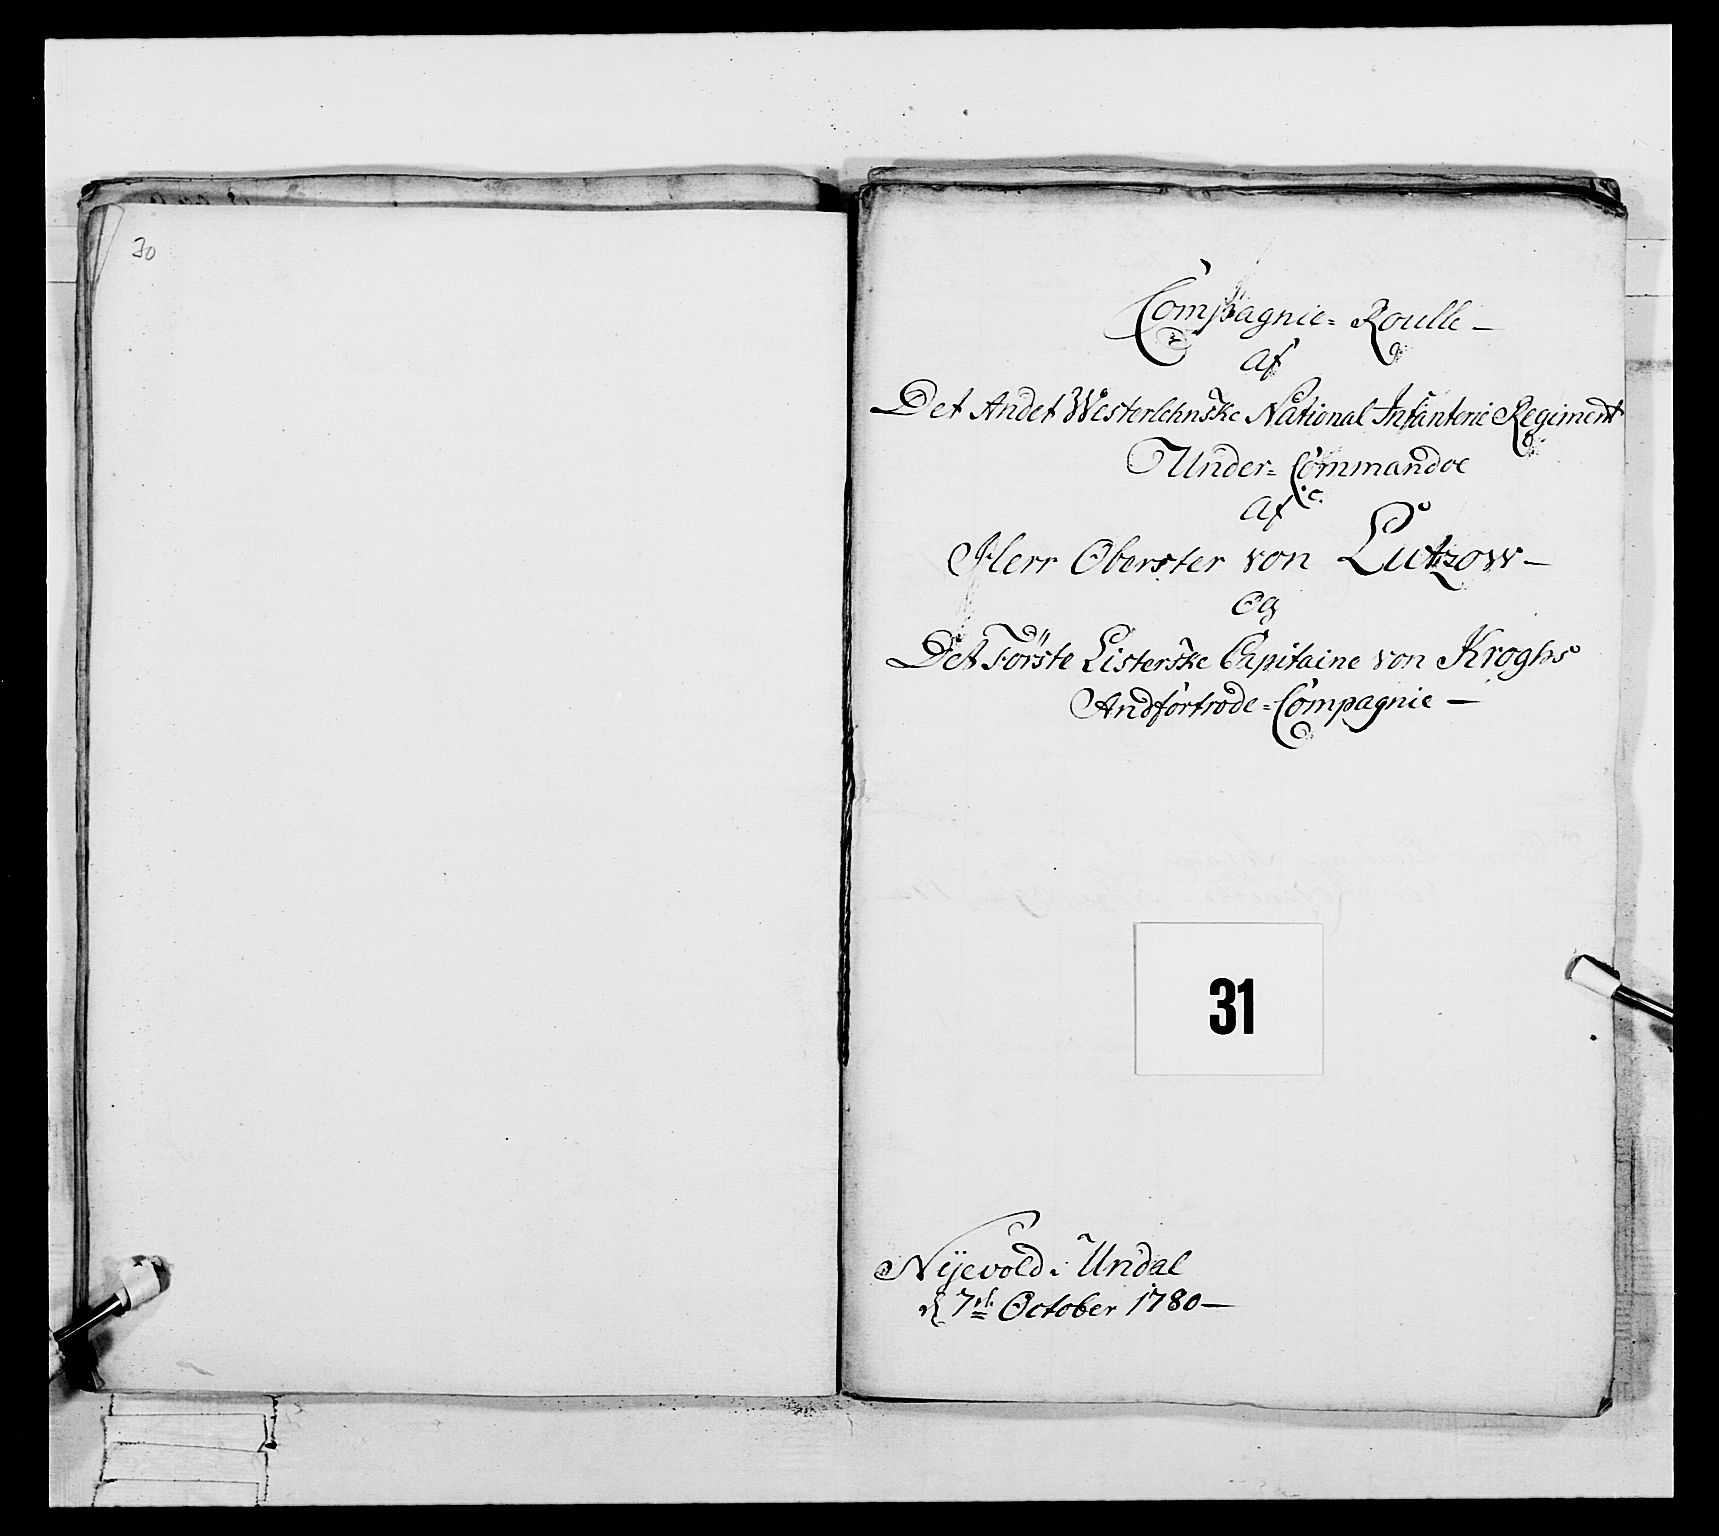 30
Compagnie= Roulle —
Af
Det Andet Westerlehnske National Infanterie Regiment
Under= Commandoe
Af
Herr Oberster von Lützow —
Og
Det Förste Listerske Capitaine von Kroghs
Andfortrode= Compagnie —
31
Nijevold i Undal
d 7de October 1780 —